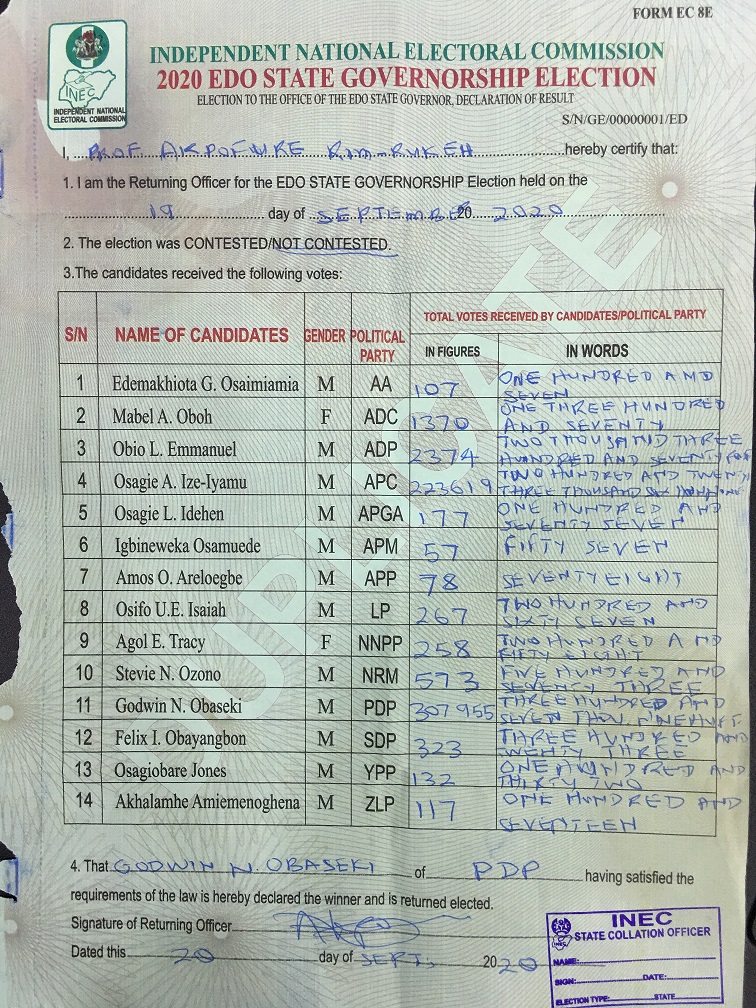 FORM EC 8E
INEC
INDEPENDENT NATIONAL
ELECTORAL COMMISSION
INDEPENDENT NATIONAL ELECTORAL COMMISSION
2020 EDO STATE GOVERNORSHIP ELECTION
ELECTION TO THE OFFICE OF THE EDO STATE GOVERNOR, DECLARATION OF RESULT
S/N/GE/00000001/ED
I, PROF AKPOFURE RIM-RUKEH hereby certify that:
1. I am the Returning Officer for the EDO STATE GOVERNORSHIP Election held on the
19 day of SEPTEMBER 20 2020
2. The election was CONTESTED/NOT CONTESTED.
3.The candidates received the following votes:
TOTAL VOTES RECEIVED BY CANDIDATES/POLITICAL PARTY
S/N NAME OF CANDIDATES GENDER POLITICAL PARTY IN FIGURES IN WORDS
1 Edemakhiota G. Osaimiamia M AA 107 ONE HUNDRED AND
SEVEN
2 Mabel A. Oboh F ADC 1370 ONE THREE HUNDRED
AND SEVENTY
3 Obio L. Emmanuel M ADP 2374 TWO THOUSAND THREE
HUNDRED AND SEVENTY FOR
4 Osagie A. Ize-Iyamu M APC 223619 TWO HUNDRED AND TWENTY
THREE THOUSAND SIX
5 Osagie L. Idehen M APGA 177 ONE HUNDRED AND
SEVENTY SEVEN
6 Igbineweka Osamuede M APM 57 FIFTY SEVEN
7 Amos O. Areloegbe M APP 78 SEVENTY EIGHT
8 Osifo U.E. Isaiah M LP 267 TWO HUNDRED AND
SIXTY SEVEN
9 Agol E. Tracy F NNPP 258 TWO HUNDRED AND
FIFTY EIGHT
10 Stevie N. Ozono M NRM 573 FIVE HUNDRED AND
SEVENTY THREE
11 Godwin N. Obaseki M PDP 307955 THREE HUNDRED AND
SEVEN THOU
12 Felix I. Obayangbon M SDP 323 THREE HUNDRED AND
TWENTY THREE
13 Osagiobare Jones M YPP 132 ONE HUNDRED AND
THIRTY TWO
14 Akhalamhe Amiemenoghena M ZLP 117 ONE HUNDRED AND
SEVENTEEN
DUPLICATE
4. That GODWIN N. OBASEKI of PDP having satisfied the
requirements of the law is hereby declared the winner and is returned elected.
Signature of Returning Officer
Dated this 20 day of SEPT, 20 20
INEC
STATE COLLATION OFFICER
NAME:
SIGN: DATE:
ELECTION TYPE: STATE